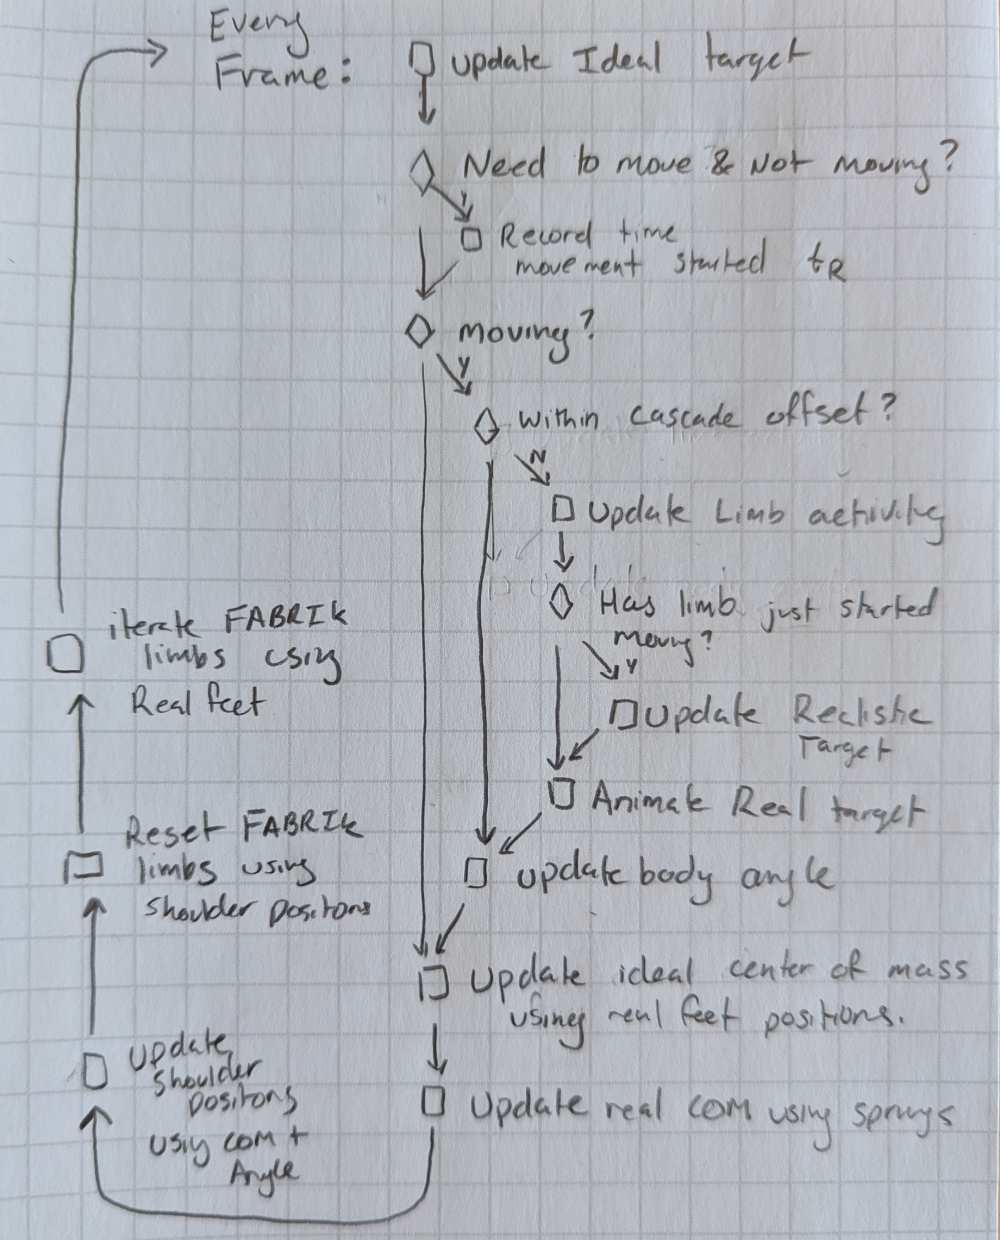 Every
Frame:
update Ideal target
Need to move & Not moving?
Y
Record time
movement started tR
moving?
Y
within cascade offset?
N
Update Limb activity
Has limb just started
moving?
Y
Update Realistic
Target
Animate Real target
update body angle
Update ideal center of mass
using real feet positions.
Update real COM using springs
update
shoulder
positons
using COM +
Angle
Reset FABRIK
limbs using
shoulder positons
iterate FABRIK
limbs using
Real feet